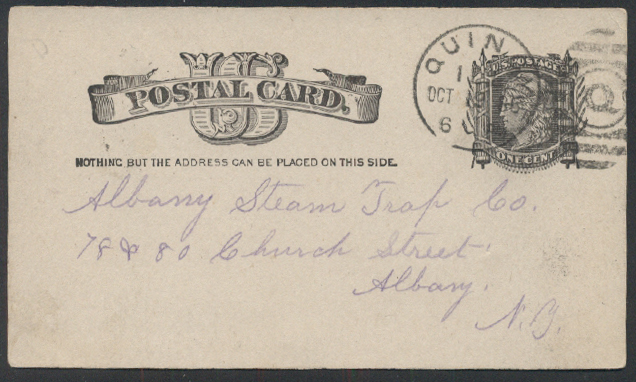 US
POSTAL CARD.
NOTHING BUT THE ADDRESS CAN BE PLACED ON THIS SIDE.
U.S. POSTAGE
ONE CENT
QUIN
OCT
6
Q
Albany Steam Trap Co.
78 & 80 Church Street
Albany.
N.Y.